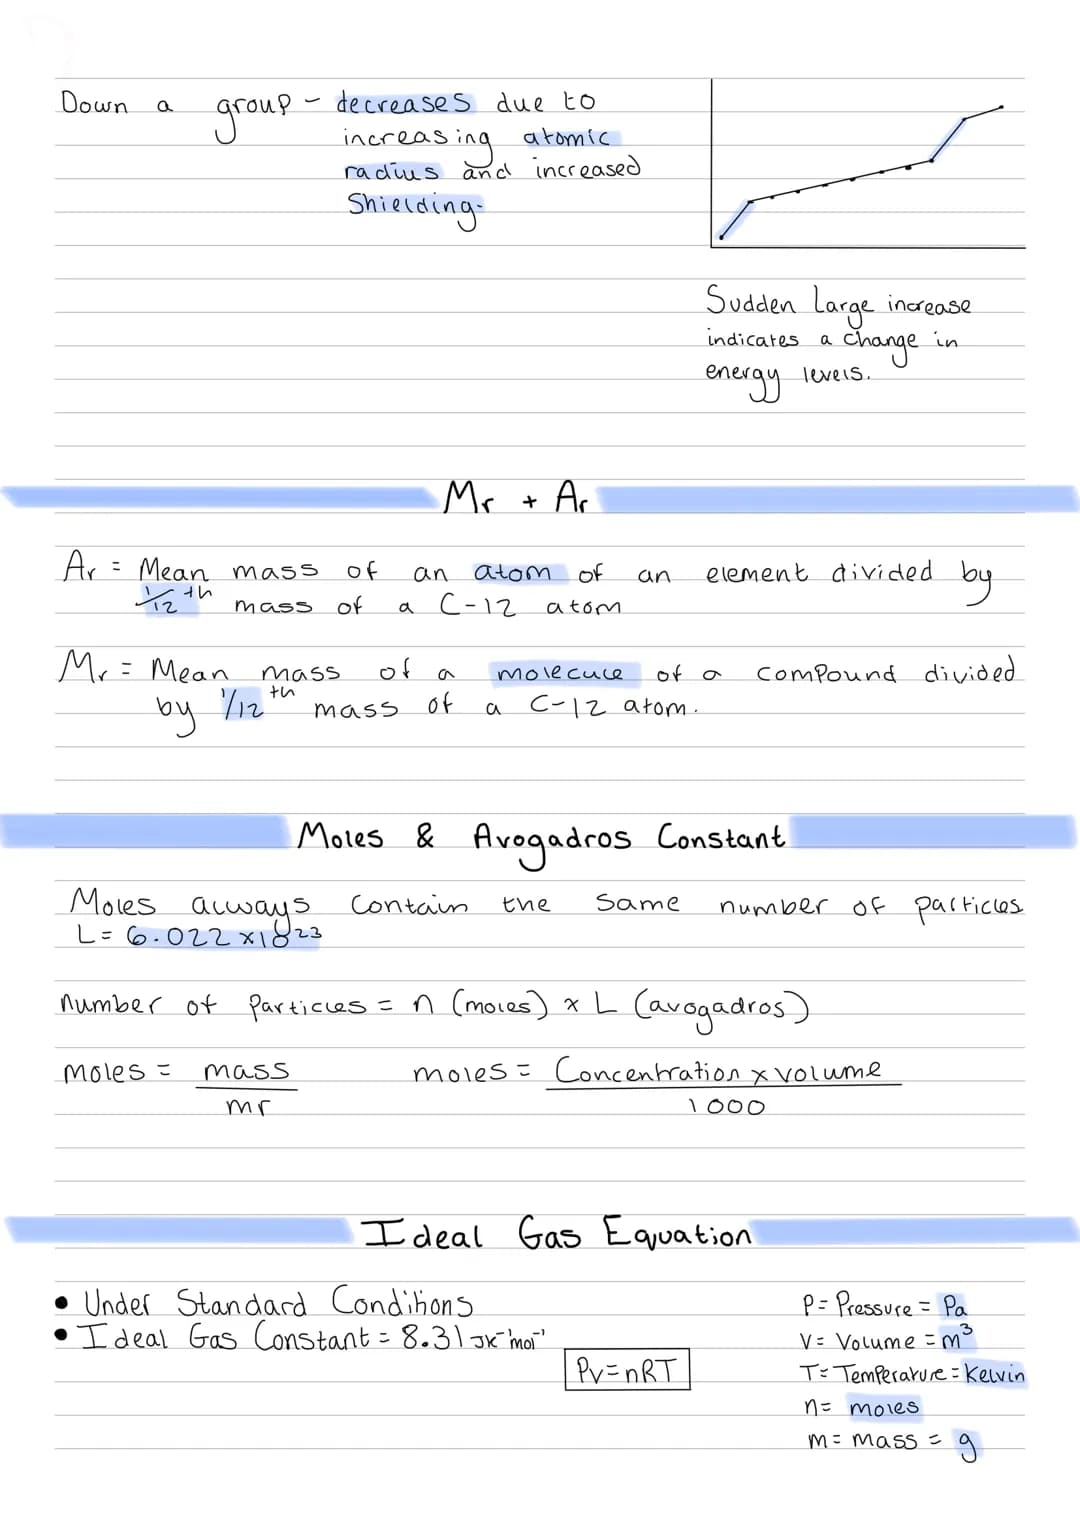 Down a group - decreases due to
increasing atomic
radius and increased
Shielding.
Sudden large increase
indicates a change in
energy levels.
Mr + Ar
Ar = Mean mass of an atom of an element divided by
1/12 th mass of a C-12 atom
Mr = Mean mass of a molecule of a compound divided
by 1/12 th mass of a C-12 atom.
Moles & Avogadros Constant
Moles always contain the same number of particles
L = 6.022 ×10²³
number of particles = n (moles) × L (avogadros)
moles = mass / mr
moles = Concentration × volume / 1000
Ideal Gas Equation
• Under Standard Conditions
• Ideal Gas Constant = 8.31 JK⁻¹mol⁻¹
PV=nRT
P = Pressure = Pa
V = Volume = m³
T = Temperature = Kelvin
n = moles
m = mass = g